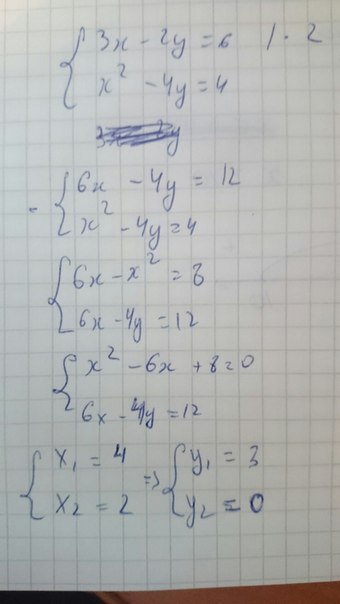 3x - 2y = 6 | · 2
x² - 4y = 4
- 6x - 4y = 12
x² - 4y = 4
6x - x² = 8
6x - 4y = 12
x² - 6x + 8 = 0
6x - 4y = 12
x₁ = 4 => y₁ = 3
x₂ = 2 y₂ = 0